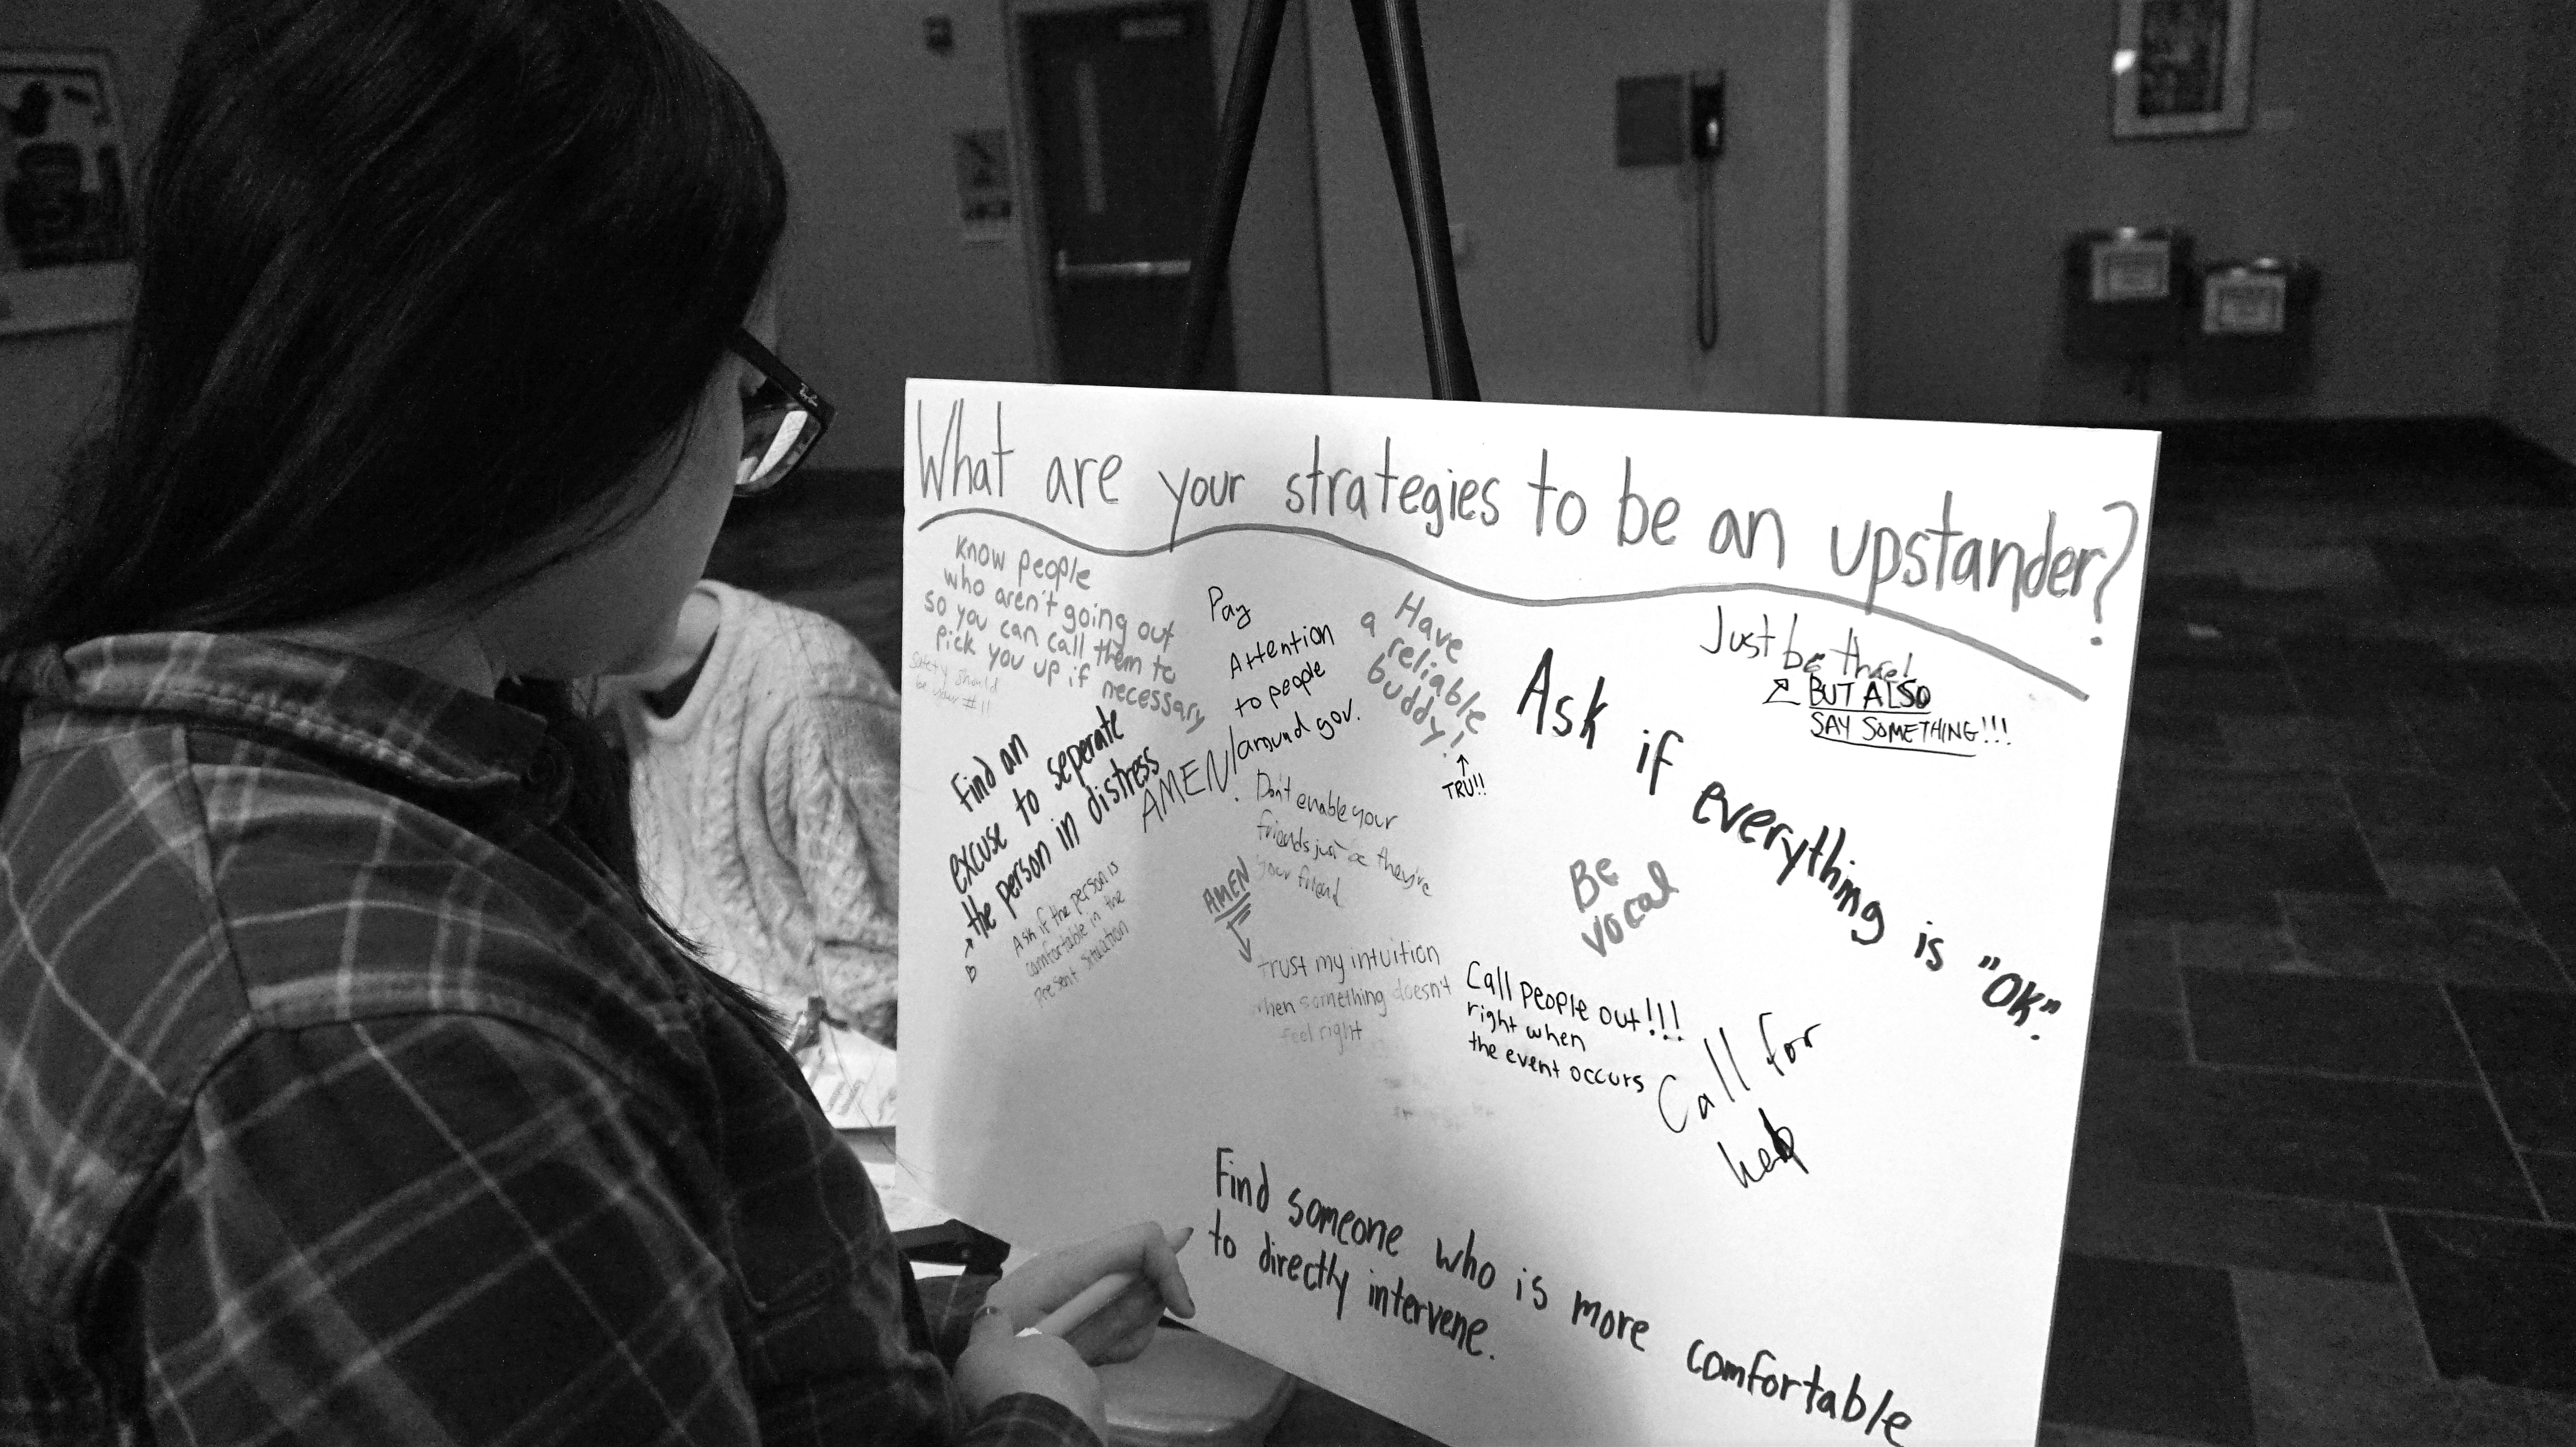 What are your strategies to be an upstander?
know people
who aren't going out
so you can call them to
pick you up if necessary
Safety should
be your #1!
Pay
Attention
to people
around gov.
AMEN!
Have
a reliable
buddy!
↑
TRU!!
Just be there!
BUT ALSO
SAY SOMETHING!!!
Ask if everything is "OK".
Find an
excuse to seperate
the person in distress
Ask if the person is
comfortable in the
present situation
Don't enable your
friends just bc they're
your friend
AMEN
trust my intuition
when something doesn't
feel right
Be
vocal
Call people out!!!
right when
the event occurs
Call for
help
Find someone who is more comfortable
to directly intervene.
Ray-Ban